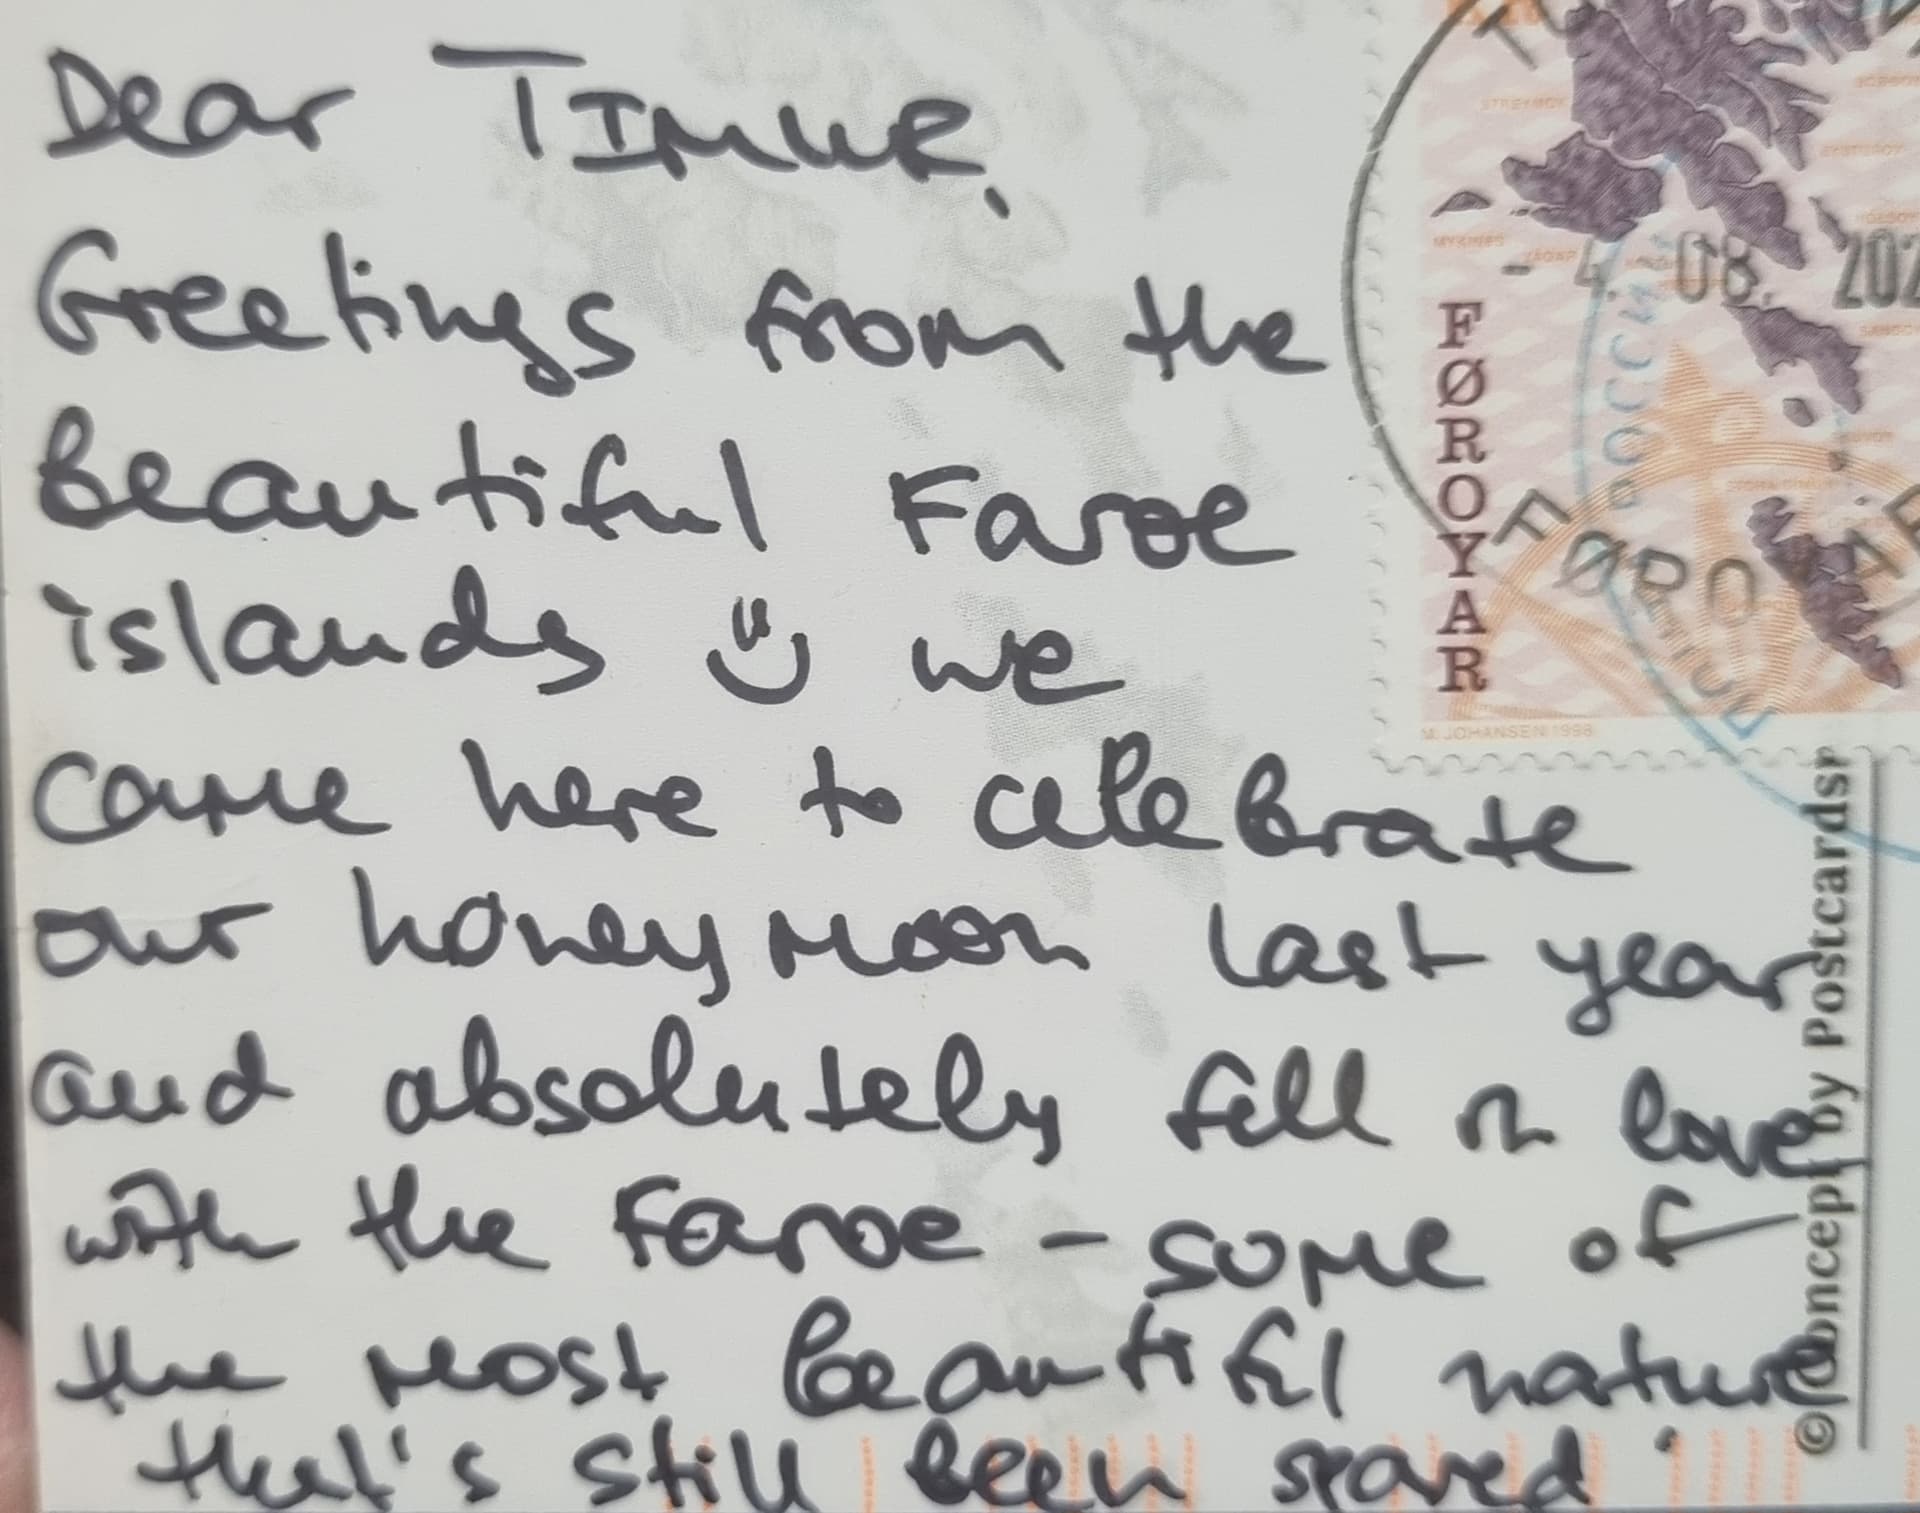 Dear TIMUR,
Greetings from the
beautiful Faroe
islands we
came here to celebrate
our honeymoon last year
and absolutely fell in love
with the Faroe - some of
the most beautiful nature
that's still been spared.
STREYMOY
MYKINES
FØROYAR
M. JOHANSEN 1998
- 4. 08. 202
FØROYAR
РОССИИ
© Concept by Postcardsp